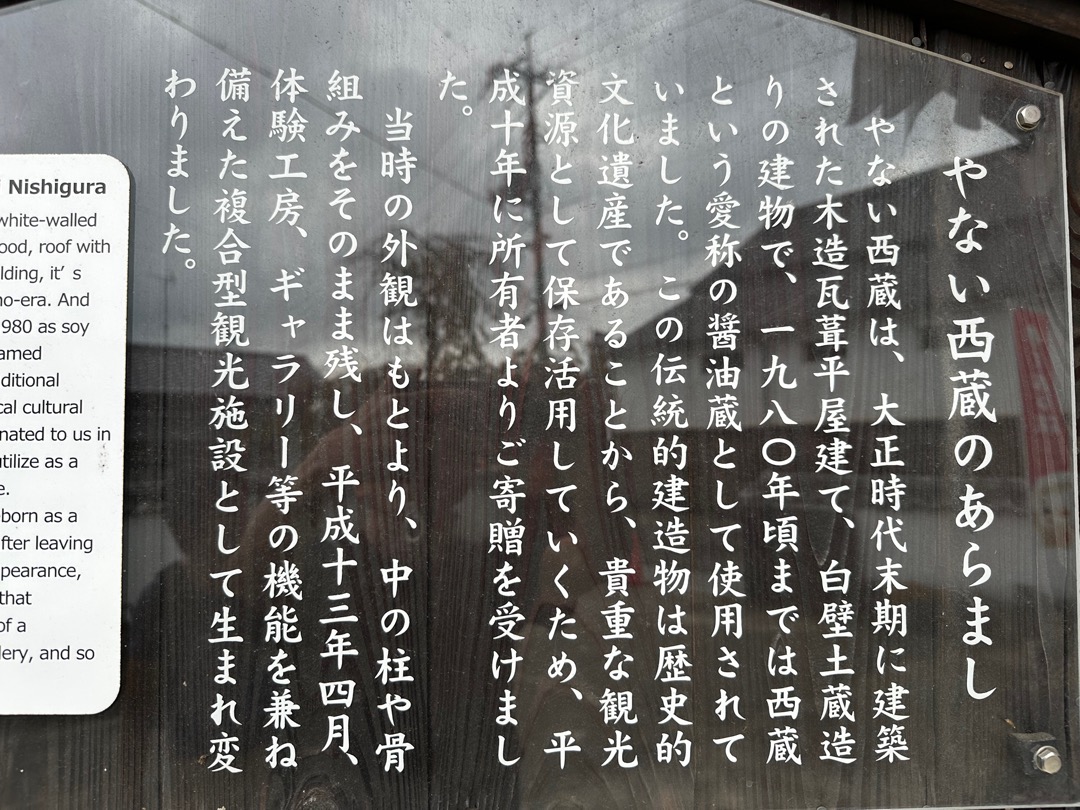 やない西蔵のあらまし
やない西蔵は、大正時代末期に建築
された木造瓦葺平屋建て、白壁土蔵造
りの建物で、一九八〇年頃までは西蔵
という愛称の醤油蔵として使用されて
いました。この伝統的建造物は歴史的
文化遺産であることから、貴重な観光
資源として保存活用していくため、平
成十年に所有者よりご寄贈を受けまし
た。
当時の外観はもとより、中の柱や骨
組みをそのまま残し、平成十三年四月、
体験工房、ギャラリー等の機能を兼ね
備えた複合型観光施設として生まれ変
わりました。
Nishigura
white-walled
ood, roof with
lding, it's
ho-era. And
980 as soy
amed
ditional
cal cultural
nated to us in
utilize as a
e.
eborn as a
fter leaving
pearance,
that
of a
lery, and so